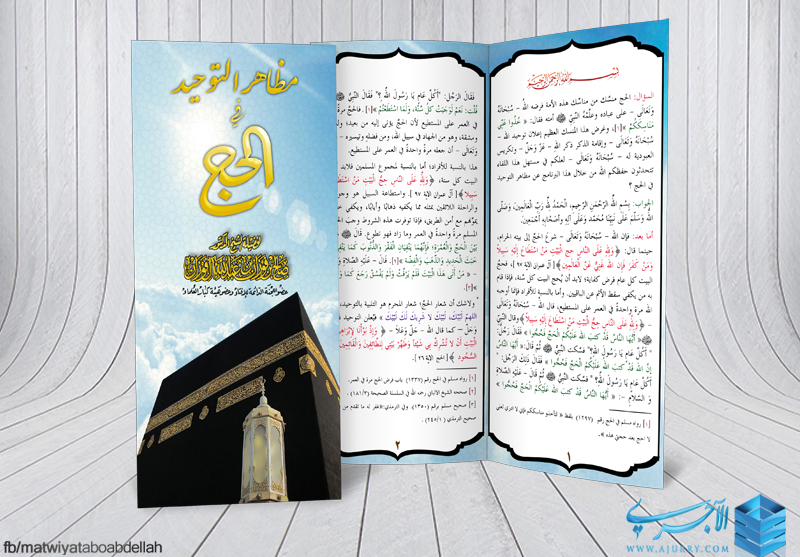 مظاهر التوحيد
في
الحج
لفضيلة الشيخ الدكتور
صالح بن فوزان بن عبدالله الفوزان
عضو اللجنة الدائمة للإفتاء وعضو هيئة كبار العلماء
بسم الله الرحمن الرحيم
السؤال: الحج منسك من مناسك هذه الأمة فرضه الله – سُبْحَانَهُ
وَتَعَالَى – على عباده وعلَّمه النبي ﷺ أمته فقال: «خُذُوا عَنِّي
مَنَاسِكَكُمْ»[١]، وغرض هذا المنسك العظيم إعلان توحيد الله –
سُبْحَانَهُ وَتَعَالَى – وإقامة الذكر ذكر الله – عَزَّ وَجَلَّ – وتكريس
العبودية له – سُبْحَانَهُ وَتَعَالَى – لعلكم في مستهل هذا اللقاء
تتحدثون حفظكم الله من خلال هذا البرنامج عن مظاهر التوحيد
في الحج ؟
الجواب: بِسْمِ اللهِ الرَّحْمَنِ الرَّحِيمِ، الْحَمْدُ للهِ رَبِّ الْعَالَمِينَ، وَصَلَّى
اللهُ وَسَلَّمَ عَلَى نَبِيِّنَا مُحَمَّدٍ وَعَلَى آلِهِ وَأَصْحَابِهِ أَجْمَعِينَ.
أما بعد: فإن الله – سُبْحَانَهُ وَتَعَالَى – شرعَ الحجَّ إلى بيته الحرام،
حينما قال: ﴿وَلِلَّهِ عَلَى النَّاسِ حِجُّ الْبَيْتِ مَنْ اسْتَطَاعَ إِلَيْهِ سَبِيلاً
وَمَنْ كَفَرَ فَإِنَّ اللَّهَ غَنِيٌّ عَنْ الْعَالَمِينَ﴾[آل عمران الآية ٩٧]، فحجُّ
البيت كل عام فرض كفاية؛ لابد أن يُحج البيت كل سَنة، فإذا قام
به من يكفي سقط الإثم عن الباقين، وأما بالنسبة للأفراد فإنما أوجبه
الله مرة واحدة في العمر على المستطيع، قال الله – سُبْحَانَهُ وَتَعَالَى
– ﴿وَلِلَّهِ عَلَى النَّاسِ حِجُّ الْبَيْتِ مَنْ اسْتَطَاعَ إِلَيْهِ سَبِيلاً﴾وقال النبي ﷺ
«أَيُّهَا النَّاسُ قَدْ كَتَبَ اللهُ عَلَيْكُمُ الْحَجَّ فَحُجُّوا» فَقَالَ رَجُلٌ:
"أَكُلَّ عَامٍ يَا رَسُولَ اللهِ؟" فسكت النبي ﷺ ثُمَّ قَالَ: «
إِنَّ اللهَ قَدْ كَتَبَ اللهُ عَلَيْكُمُ الْحَجَّ فَحُجُّوا» فَقَالَ ذلك الرَّجُلُ: "
أَكُلَّ عَامٍ يَا رَسُولَ اللهِ؟" فسكت النبي ﷺ ثُمَّ قَالَ عَلَيْهِ الصَّلَاةُ
وَ السَّلَامُ –: «أَيُّهَا النَّاسُ قَدْ كَتَبَ اللهُ عَلَيْكُمُ الْحَجَّ فَحُجُّوا»
[١] رواه مسلم في الحج رقم (١٢٩٧) بلفظ «لتأخذوا مناسككم فإني لا أدري لعلي
لا أحج بعد حجتي هذه».
١
فَقَالَ الرَّجُلُ: "أَكُلَّ عَامٍ يَا رَسُولَ اللهِ ؟" فَقَالَ النَّبِيُّ ﷺ
قُلْتُ: نَعَمْ لَوَجَبَتْ كُلَّ سَنَةٍ، وَلَمَا اسْتَطَعْتُمْ»[١]. فالحجُّ مرةً
في العمر على المستطيع لأن الحجَّ يؤتى إليه من بعيد؛
ومشقة، وهو من الجهاد في سبيل الله، ومن فضله وتيسيره –
وَتَعَالَى – أن جعله مرةً واحدةً في العمر على المستطيع.
هذا بالنسبة للأفراد؛ أما بالنسبة لمجموع المسلمين فلابد
البيت كل سنة، ﴿وَلِلَّهِ عَلَى النَّاسِ حِجُّ الْبَيْتِ مَنْ اسْتَطَاعَ
سَبِيلاً﴾[آل عمران الآية ٩٧]. واستطاعة السبيل هو وجود
والراحلة اللائقين بمثله مما يكفيه ذهابًا وإيابًا، ويكفي
يموِّهم مع أمن الطريق، فإذا توفرت هذه الشروط وجبَ
المسلم مرةً واحدةً في العمر وما زاد فهو تطوع. قال ﷺ
بَيْنَ الْحَجِّ وَالْعُمْرَةِ؛ فَإِنَّهُمَا يَنْفِيَانِ الْفَقْرَ وَالذُّنُوبَ كَمَا يَنْفِي
خَبَثَ الْحَدِيدِ وَالذَّهَبِ وَالْفِضَّةِ»[٢]. قال – عَلَيْهِ الصَّلَاةُ
– «مَنْ أَتَى هَذَا الْبَيْتَ فَلَمْ يَرْفُثْ وَلَمْ يَفْسُقْ رَجَعَ كَمَا
[٣].
ولاشك أن شعار الحج؛ شعار المحرم هو التلبية بالتوحيد،
اللهم لَبَّيْكَ، لَبَّيْكَ لَا شَرِيكَ لَكَ لَبَّيْكَ» فيُعلن التوحيد
وَجَلَّ – كما قال الله – جَلَّ وَعَلاَ – ﴿وَإِذْ بَوَّأْنَا لِإِبْرَاهِيمَ
الْبَيْتِ أَنْ لَا تُشْرِكْ بِي شَيْئاً وَطَهِّرْ بَيْتِي لِلطَّائِفِينَ وَالْقَائِمِينَ
السُّجُودِ﴾[الحج الآية ٢٦].
[١] رواه مسلم في الحج رقم (١٣٣٧) باب فرض الحج مرة في العمر.
[٢] صححه الشيخ الألباني رحمه الله في السلسلة الصحيحة (١٨١/٣).
[٣] صحيح مسلم رقم (١٣٥٠) وفي الترمذي:«غفر له ما تقدم من
صحيح الترمذي (٢٤٥/١).
٢
الآجري
WWW.AJURRY.COM
fb/matwiyataboabdellah